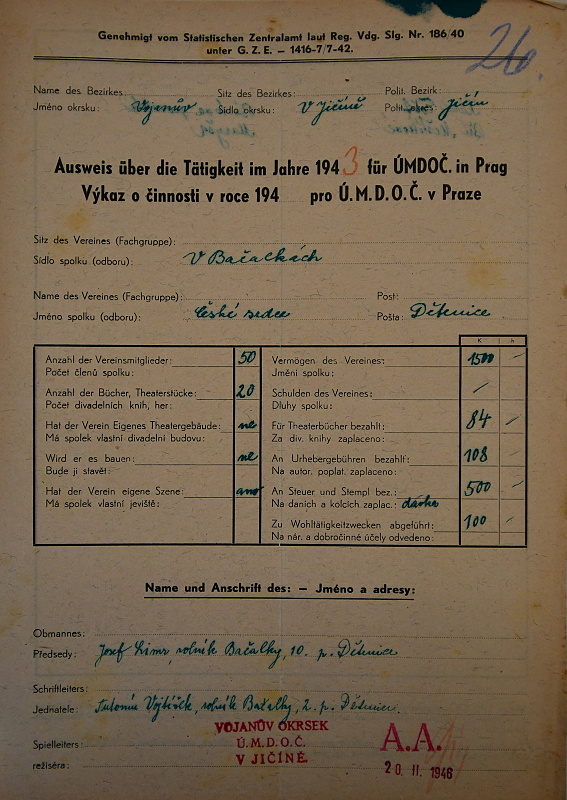 Genehmigt vom Statistischen Zentralamt laut Reg. Vdg. Slg. Nr. 186/40
unter G. Z. E. — 1416-7/7-42.
26.
Name des Bezirkes: Sitz des Bezirkes: Polit. Bezirk:
Jméno okrsku: Vojanův Sídlo okrsku: V Jičíně Polit. okres: Jičín
Ausweis über die Tätigkeit im Jahre 1943 für ÚMDOČ. in Prag
Výkaz o činnosti v roce 194 pro Ú.M.D.O.Č. v Praze
Sitz des Vereines (Fachgruppe):
Sídlo spolku (odboru): V Bačalkách
Name des Vereines (Fachgruppe): Post:
Jméno spolku (odboru): České srdce Pošta: Dětenice
K h
Anzahl der Vereinsmitglieder: 50 Vermögen des Vereines: 1500 —
Počet členů spolku: Jmění spolku:
Anzahl der Bücher, Theaterstücke: 20 Schulden des Vereines: /
Počet divadelních knih, her: Dluhy spolku:
Hat der Verein Eigenes Theatergebäude: ne Für Theaterbücher bezahlt: 84 —
Má spolek vlastní divadelní budovu: Za div. knihy zaplaceno:
Wird er es bauen: ne An Urhebergebühren bezahlt: 108 —
Bude ji stavět: Na autor. poplat. zaplaceno:
Hat der Verein eigene Szene: ano An Steuer und Stempl bez.: 500 —
Má spolek vlastní jeviště: Na daních a kolcích zaplac.: dávka
Zu Wohltätigkeitzwecken abgeführt: 100 —
Na nár. a dobročinné účely odvedeno:
Name und Anschrift des: — Jméno a adresy:
Obmannes:
Předsedy: Josef rolník Bačalky, 10. p. Dětenice
Schriftleiters:
Jednatele: Antonín Vojtíšek, rolník Bačalky, 2. p. Dětenice.
VOJANŮV OKRSEK
Ú.M.D.O.Č.
V JIČÍNĚ.
Spielleiters:
režiséra:
A.A.
20. II. 1946